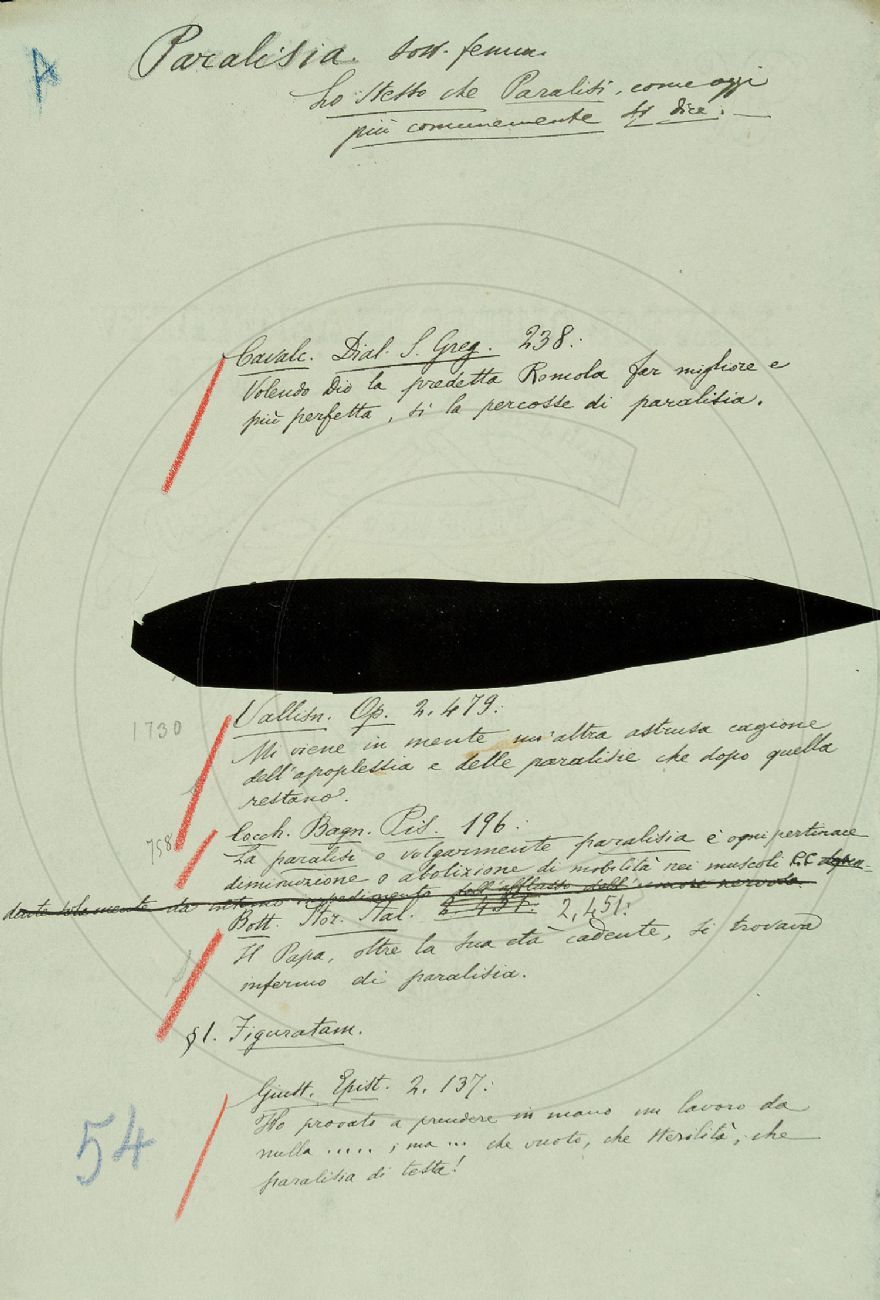 Paralisia. Sost. femm.
Lo stesso che Paralisi, come oggi
più comunemente si dice. —
Cavalc. Dial. S. Greg. 238:
Volendo Dio la predetta Romola far migliore e
più perfetta, si la percosse di paralisia.
1730
Vallisn. Op. 2. 479:
Mi viene in mente un'altra astrusa cagione
dell'apoplessia e delle paralisie che dopo quella
restano.
758
Cocch. Bagn. Pis. 196:
La paralisi o volgarmente paralisia è ogni pertinace
diminuzione o abolizione di mobilità nei muscoli ec dipen-
dente solamente da interno impedimento dell'afflusso dell'umore nervoso.
Bott. Stor. Ital. 2. 451: 2,451:
Il Papa, oltre la sua età cadente, si trovava
infermo di paralisia.
§ 1. Figuratam.
Giust. Epist. 2. 137:
Ho provato a prendere in mano un lavoro da
nulla .....; ma ... che vuoto, che sterilità, che
paralisia di testa!
54